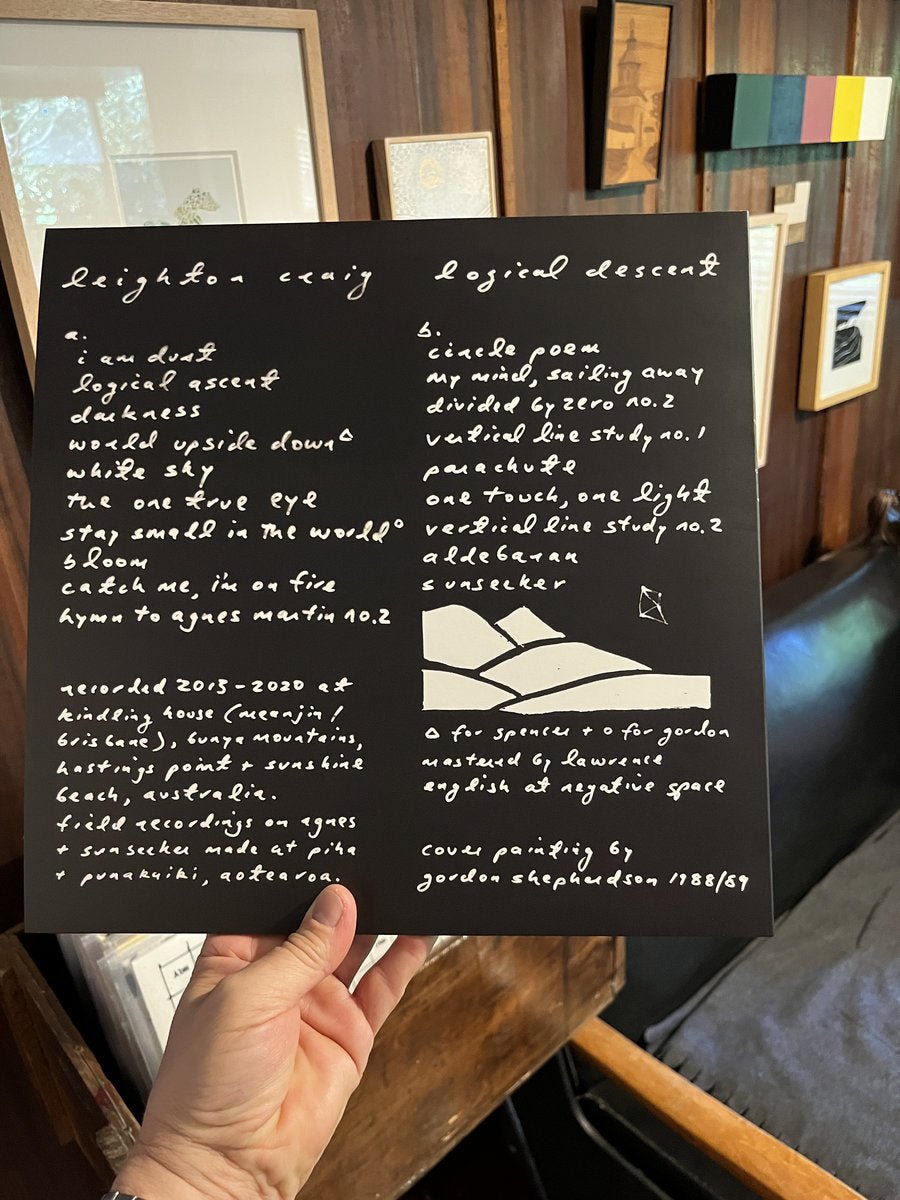 leighton craig
logical descent
a.
i am dust
logical ascent
darkness
world upside down△
white sky
the one true eye
stay small in the world°
bloom
catch me, i'm on fire
hymn to agnes martin no.2
recorded 2013-2020 at
kindling house (meanjin/
brisbane), bunya mountains,
hastings point + sunshine
beach, australia.
field recordings on agnes
+ sunseeker made at piha
+ punakaiki, aotearoa.
b.
circle poem
my mind, sailing away
divided by zero no.2
vertical line study no.1
parachute
one touch, one light
vertical line study no.2
aldebaran
sunseeker
△ for spencer + o for gordon
mastered by lawrence
english at negative space
cover painting by
gordon shepherdson 1988/89